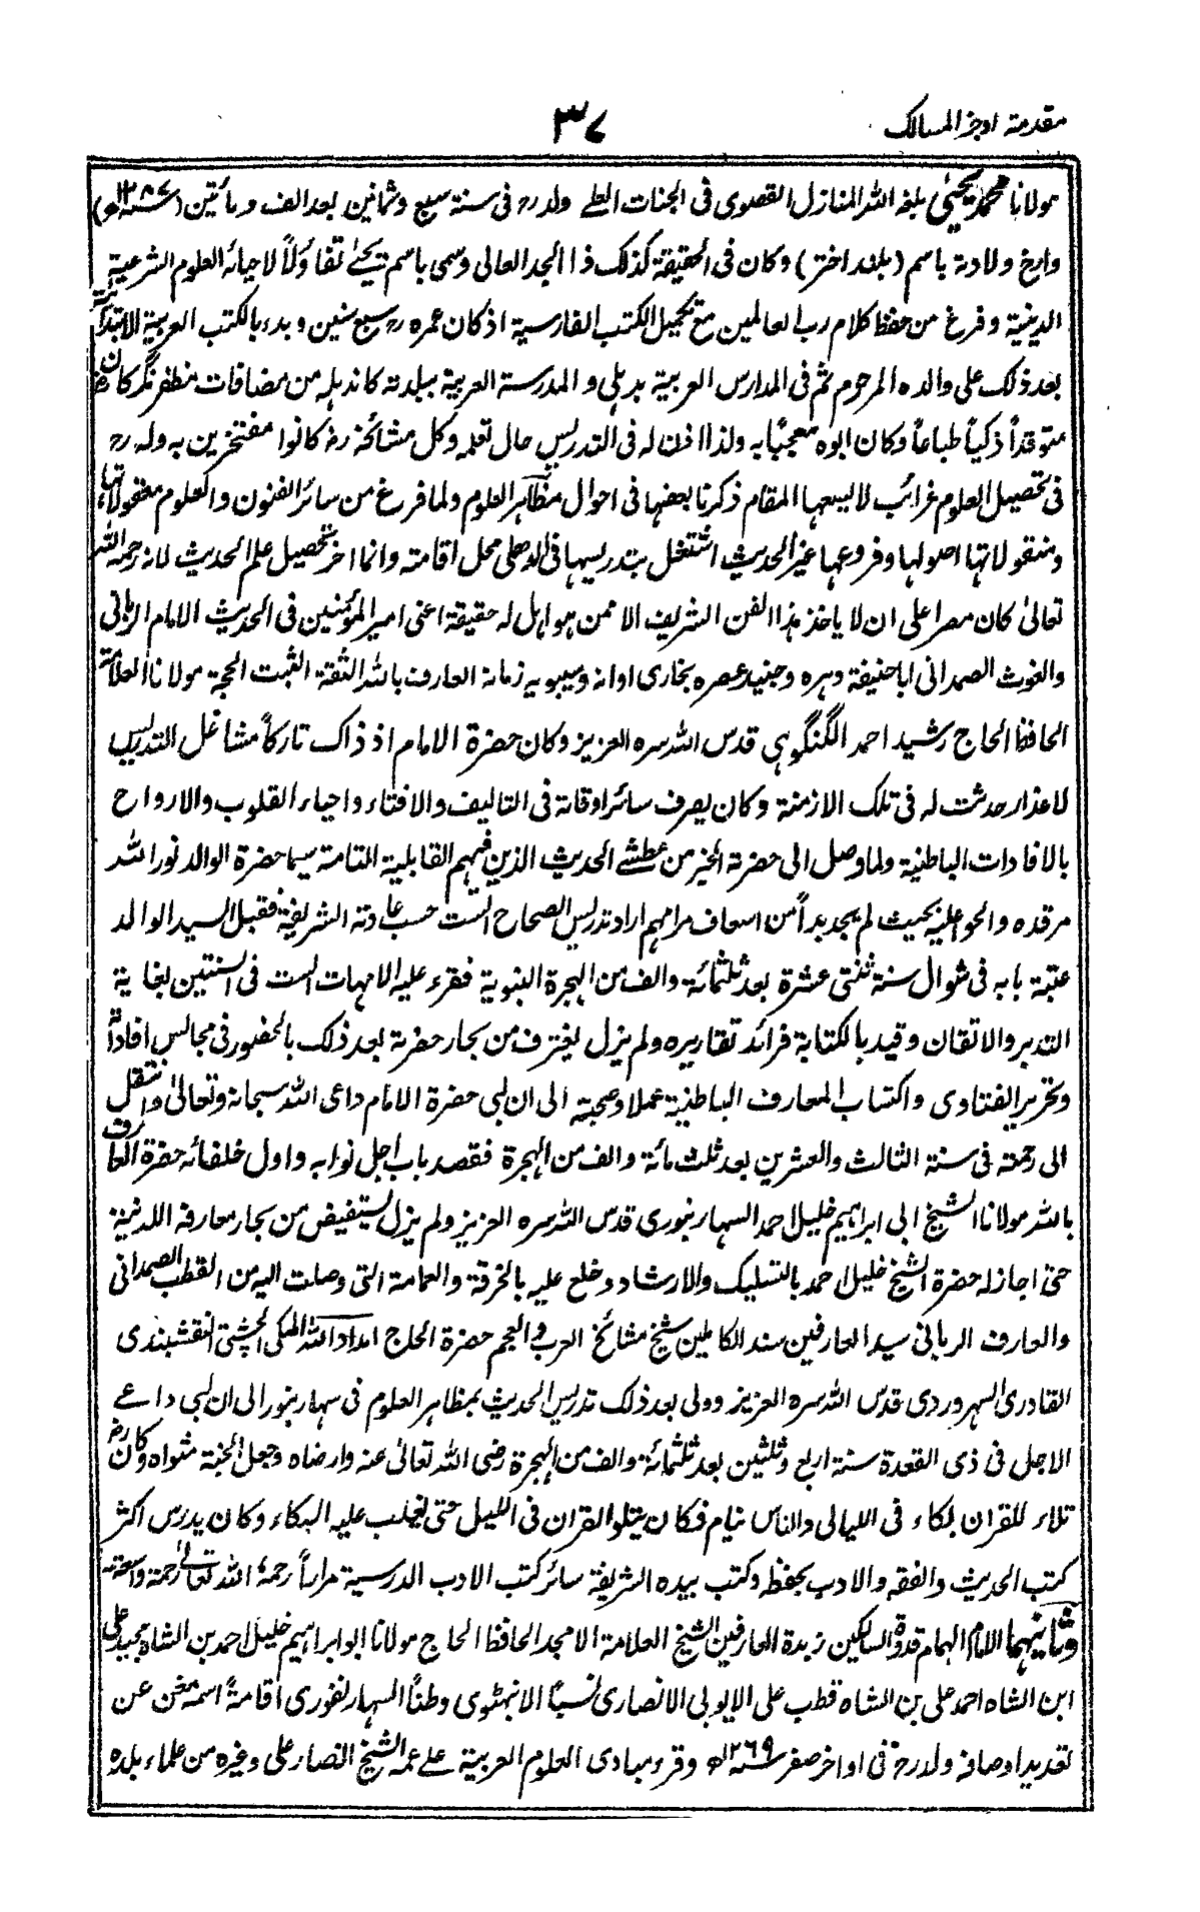 مقدمة اوجز المسالك
٣٧
مولانا محمد يحيىٰ بلغه الله المنازل القصوى فى الجنات العلے ولد رح فى سنة سبع وثمانين بعد الف ومأتين (سنة ١٢٨٧ھ)
وارخ ولادته باسم (بلند اختر) وكان فى الحقيقة كذلك ذا المجد العالى وسمى باسم يحيىٰ تفاؤلاً لاحيائه العلوم الشرعية
الدينية وفرغ من حفظ كلام رب العالمين مع تكميل الكتب الفارسية اذ كان عمره رح سبع سنين وبدء بالكتب العربية الابتدائية
بعد ذلك على والده المرحوم ثم فى المدارس العربية بدهلى والمدرسة العربية ببلدته كاندهله من مضافات مظفرنگر كان رح
متوقداً ذكياً طباعاً وكان ابوه معجبًا به ولذا اذن له فى التدريس حال تعلمه وكل مشائخه رح كانوا مفتخرين به وله رح
فى تحصيل العلوم غرائب لا يسعها المقام ذكرنا بعضها فى احوال مظاهر العلوم ولما فرغ من سائر الفنون والعلوم معقولاتها
ومنقولاتها اصولها وفروعها غير الحديث اشتغل بتدريسها فى الدهلى محل اقامته وانما اخر تحصيل علم الحديث لانه رحمه الله
تعالىٰ كان مصرا على ان لا ياخذ هذا الفن الشريف الا ممن هو اهل له حقيقة اعنى امير المؤمنين فى الحديث الامام الربانى
والغوث الصمدانى ابا حنيفة دهره وجنيد عصره بخارى اوانه وسيبويه زمانه العارف بالله الثقة الثبت الحجة مولانا العلامة
الحافظ الحاج رشيد احمد الگنگوهى قدس الله سره العزيز وكان حضرة الامام اذ ذاك تاركاً مشاغل التدريس
لاعذار حدثت له فى تلك الازمنة وكان يصرف سائر اوقاته فى التاليف والافتاء واحياء القلوب والارواح
بالافادات الباطنية ولما وصل الى حضرته الخبر من عطشے الحديث الذين فيهم القابلية التامة سيما حضرة الوالد نور الله
مرقده والحوا عليه بحيث لم يجد بداً من اسعاف مرامهم اراد تدريس الصحاح الست حسب عادته الشريفة فقبل السيد الوالد
عتبة بابه فى شوال سنة ثنتى عشرة بعد ثلثمائة والف من الهجرة النبوية فقرء عليه الامهات الست فى السنتين بغاية
التدبر والاتقان وقيد بالكتابة فرائد تقاريره ولم يزل يغترف من بحار حضرته بعد ذلك بالحضور فى مجالس افاداته
وتحرير الفتاوى واكتساب المعارف الباطنية عملا وصحبة الى ان لبى حضرة الامام داعى الله سبحانه وتعالىٰ وانتقل
الى رحمته فى سنة الثالث والعشرين بعد ثلث مائة والف من الهجرة فقصد باب اجل نوابه واول خلفائه حضرة العارف
بالله مولانا الشيخ ابى ابراهيم خليل احمد السهارنبورى قدس الله سره العزيز ولم يزل يستفيض من بحار معارفه اللدنية
حتى اجاز له حضرة الشيخ خليل احمد بالتسليك والارشاد وخلع عليه بالخرقة والعمامة التى وصلت اليه من القطب الصمدانى
والعارف الربانى سيد العارفين سند الكاملين شيخ مشائخ العرب والعجم حضرة الحاج امداد الله المكى الچشتى النقشبندى
القادرى السهروردى قدس الله سره العزيز وولى بعد ذلك تدريس الحديث بمظاهر العلوم فى سهارنبور الى ان لبى داعے
الاجل فى ذى القعدة سنة اربع وثلثين بعد ثلثمائة والف من الهجرة رضى الله تعالىٰ عنه وارضاه وجعل الجنة مثواه وكان رح
تلاء للقران بكاء فى الليالى والناس نيام فكان يتلو القران فى الليل حتى يغلب عليه البكاء وكان يدرس اكثر
كتب الحديث والفقه والادب بحفظه وكتب بيده الشريفة سائر كتب الادب الدرسية مراراً رحمه الله تعالىٰ رحمة واسعة
وثانيهما الامام الهمام قدوة السالكين زبدة العارفين الشيخ العلامة الامجد الحافظ الحاج مولانا ابو ابراهيم خليل احمد بن الشاه مجيد على
ابن الشاه احمد على بن الشاه قطب على الايوبى الانصارى نسبًا الانبهٹوى وطنًا السهارنفورى اقامةً اسمه مغن عن
تعديد اوصافه ولد رح فى اواخر صفر سنة ١٢٦٩ھ وقرء مبادى العلوم العربية علے عمه الشيخ انصار على وغيره من علماء بلده